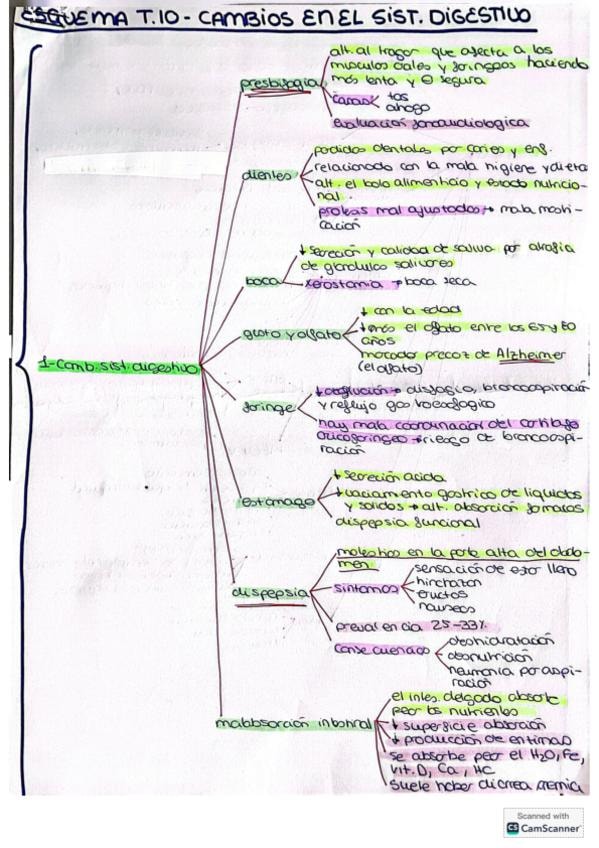 ESQUEMA T.10 - CAMBIOS EN EL SIST. DIGESTIVO
1-Camb. sist. digestivo
presbifagia
alt. al tragar que afecta a los
músculos orales y faríngeos haciendo
más lenta y ⊖ segura
causas
tos
ahogo
evaluación fonoaudiologica
dientes
perdidas dentales por caries y enf.
relacionado con la mala higiene y dieta
alt. el bolo alimenticio y estado nutricio-
nal.
protesis mal ajustadas → mala masti-
cación
boca
↓ secreción y calidad de saliva por atrofia
de glándulas salivares
xerostomía → boca seca
gusto y olfato
↓ con la edad
↓ más el olfato entre los 65 y 80
años
marcador precoz de Alzheimer
(el olfato)
faringe
↓ deglución → disfagia, broncoaspiración
y reflujo gastroesofagico
hay mala coordinacion del cartilago
cricofaringeo → riesgo de broncoaspi-
ración
estómago
↓ secreción acida
↓ vaciamiento gastrico de liquidos
y solidos → alt. absorción farmacos
dispepsia funcional
dispepsia
molestias en la parte alta del abdo-
men
síntomas
sensación de estar lleno
hinchazon
eructos
nauseas
prevalencia 25-33%
consecuencias
deshidratación
desnutrición
neumonia por aspi-
ración
malabsorción intestinal
el intes. delgado absorbe
peor los nutrientes
↓ superficie absorción
↓ producción de enzimas
se absorbe peor el H2O, Fe,
vit. D, Ca, HC
suele haber diarrea, anemia
Scanned with
CS CamScanner